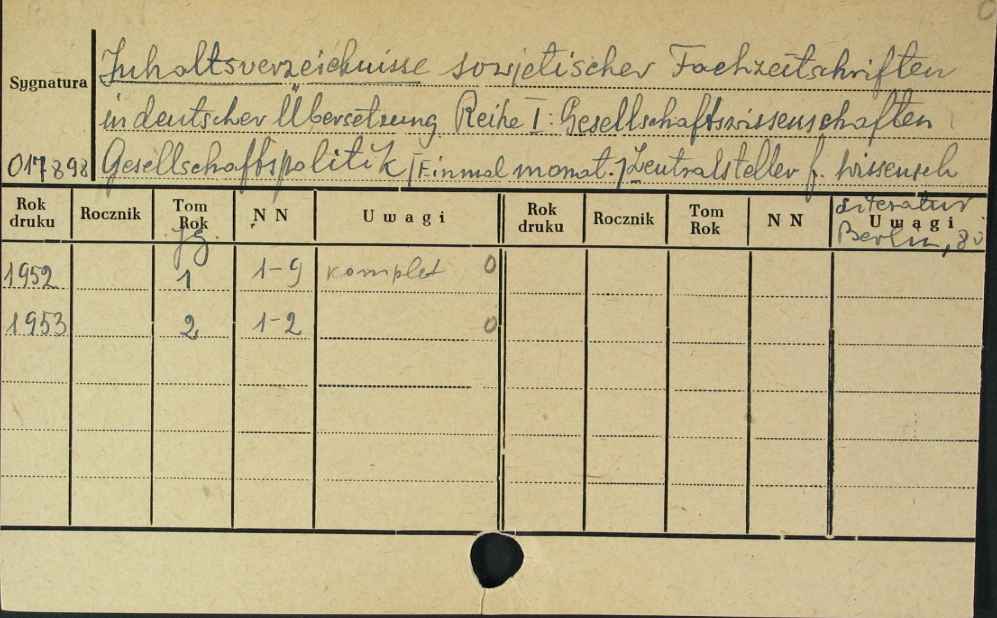 Inhaltsverzeichnisse sowjetischer Fachzeitschriften
Sygnatura
in deutscher Übersetzung Reihe I: Gesellschaftswissenschaften
017898 Gesellschaftspolitik [Einmal monat.] Zentralsteller f. wissensch
Literatur
Berlin, 80
Rok druku Rocznik Tom Rok NN Uwagi Rok druku Rocznik Tom Rok NN Uwagi
Jg.
1952 1 1-9 komplet 0
1953 2 1-2 0